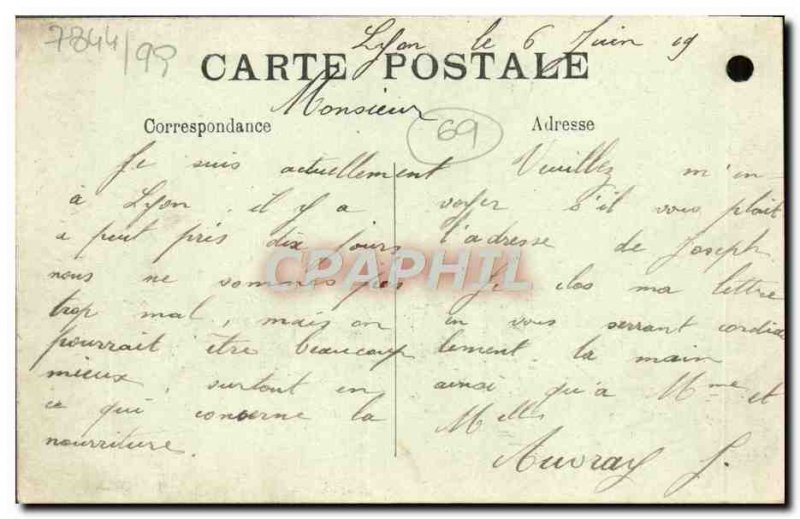 7844/99
Lyon le 6 Juin 19
CARTE POSTALE
Monsieur
69
Correspondance
Adresse
Je suis actuellement
à Lyon. il y a
a peut près dix jours
nous ne sommes pas
trop mal, mais on
pourrait être beaucoup
mieux, surtout en
ce qui concerne la
nourriture.
Veuillez m'en-
voyer s'il vous plait
l'adresse de Joseph
Je clos ma lettre
en vous serrant cordia
lement la main
ainsi qu'a Mme et
Melles
Auvray J.
CPAPHIL